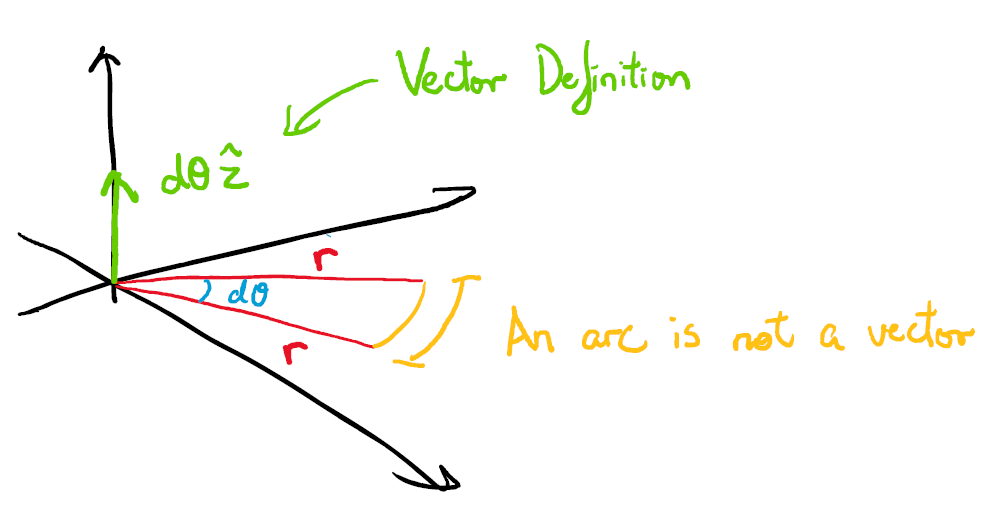 Vector Definition
dθ ẑ
r
dθ
r
An arc is not a vector